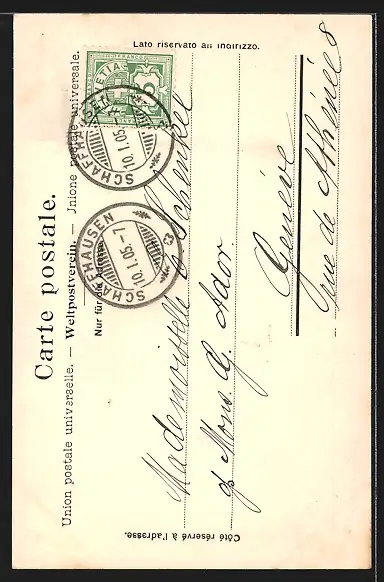 Carte postale.
Union postale universelle. — Weltpostverein. — Unione postale universale.
Nur für die Adresse.
Lato riservato all indirizzo.
Côté réservé à l'adrasse.
HELVETIA
5
SCHAFFHAUSEN
10.I.05.-7
SCHAFFHAUSEN
10.I.05.-7
Mademoiselle C. Schenkel
p/ Mons G. Ador.
Genève
rue de Athénée 8